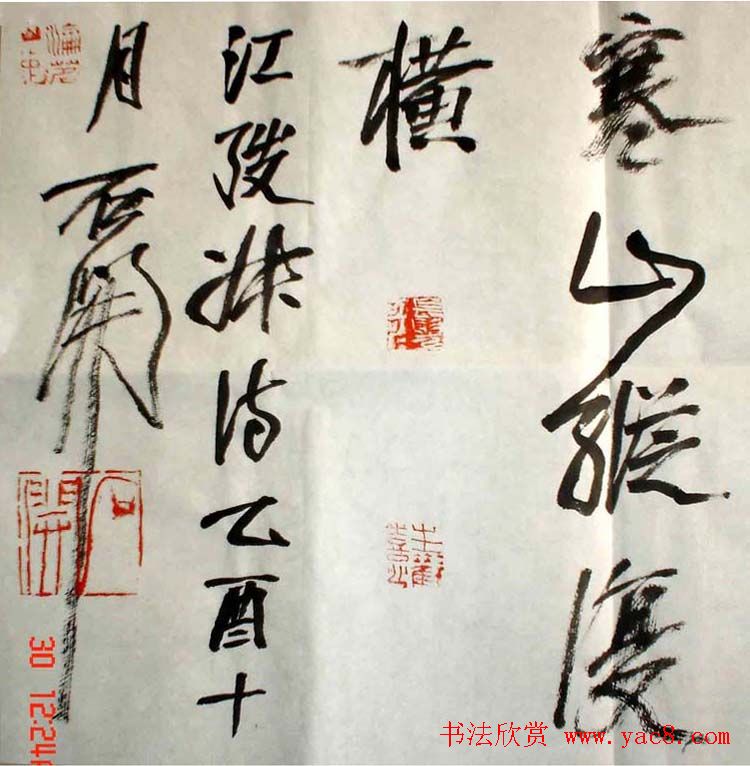 寒山縱復
橫
江陵詩乙酉十
月石開
石開
30 12:24
书法欣赏 www.yac8.com